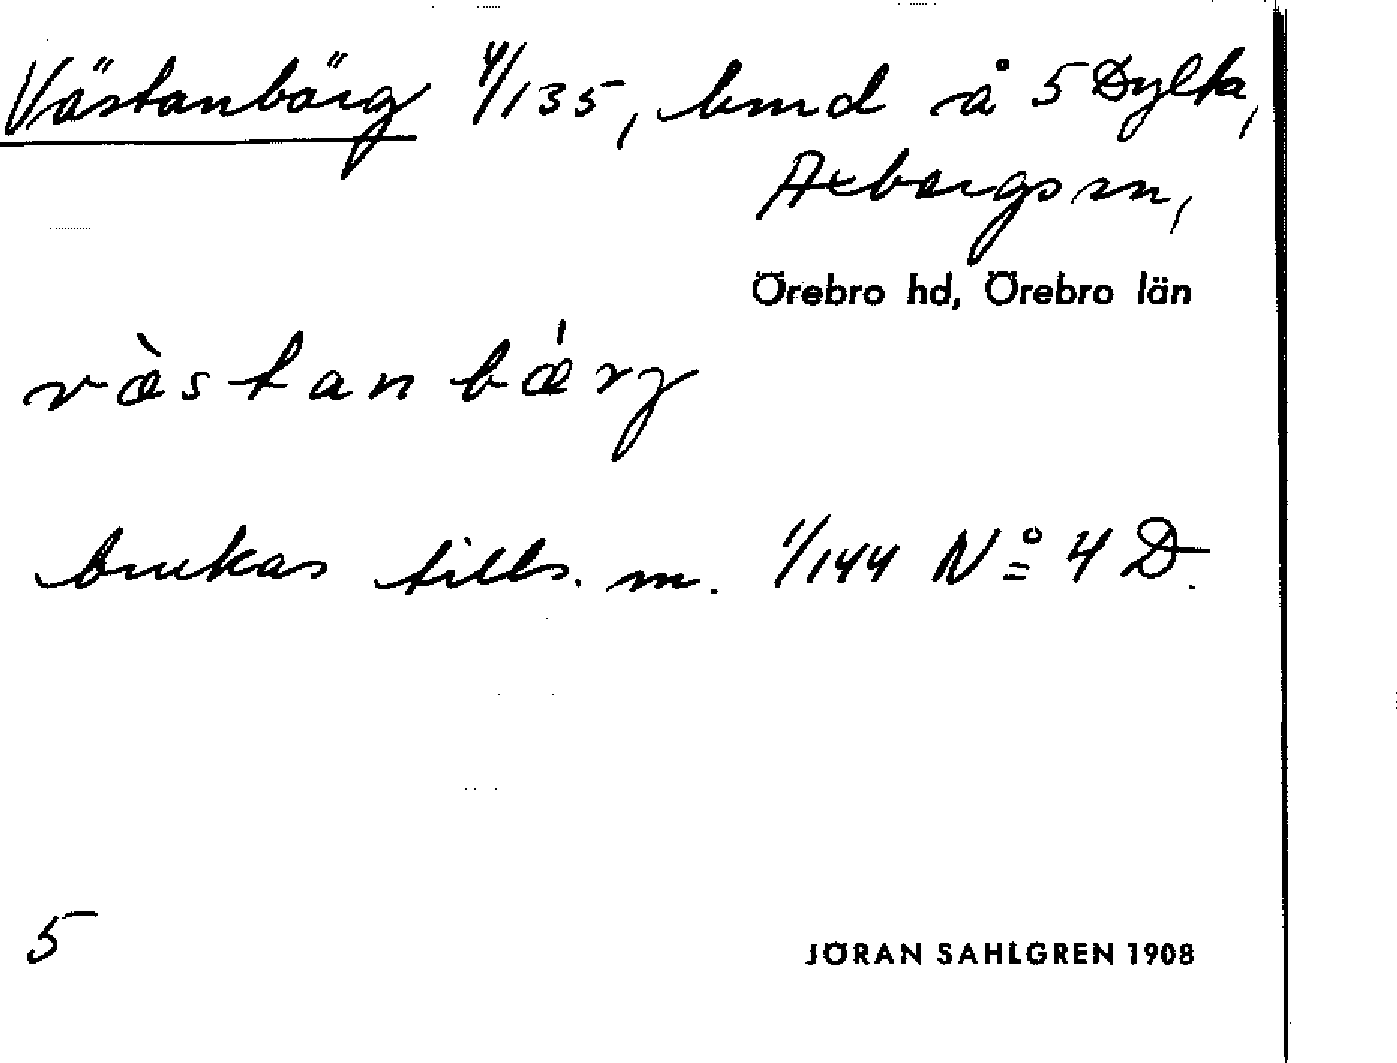 Västanbärg 4/135, lmd å 5 Dylta,
Axbergs sn,
Örebro hd, Örebro län
væ̀stanbǽrj
brukas tills. m. 1/144 Nº 4 D.
5
JÖRAN SAHLGREN 1908